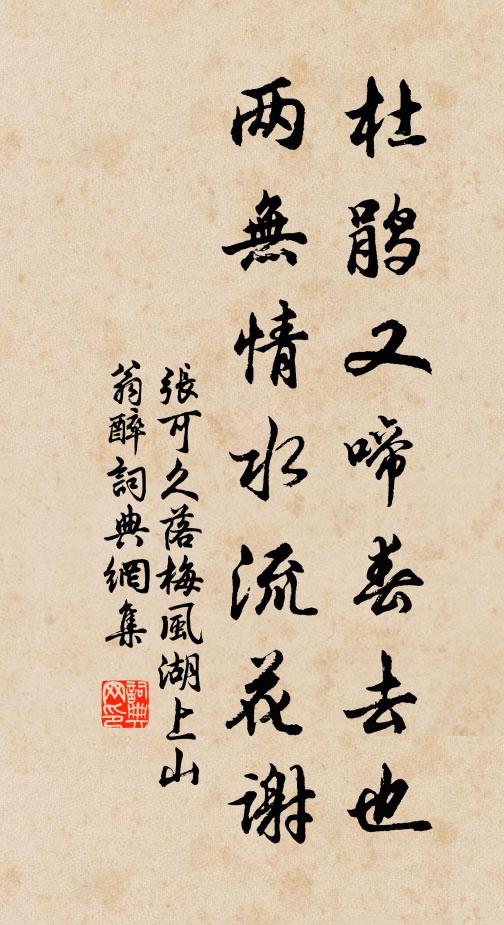 杜鹃又啼春去也
两無情水流花谢
張可久落梅風湖上山
翁醉詞典網集
詞典网印